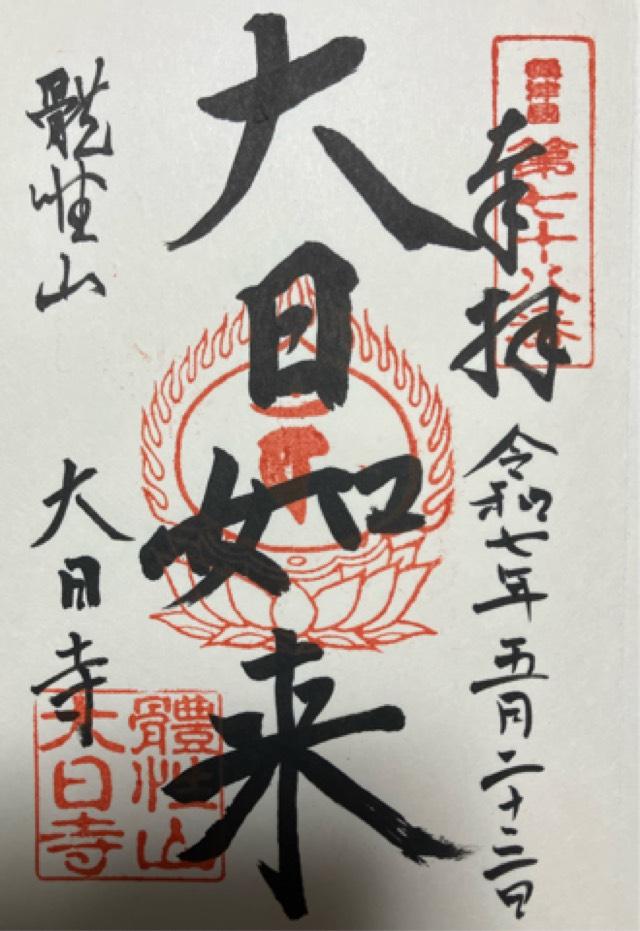 奉拝
令和七年五月二十三日
攝津國
第七十六番
大日如来
體性山
大日寺
體性山
大日寺